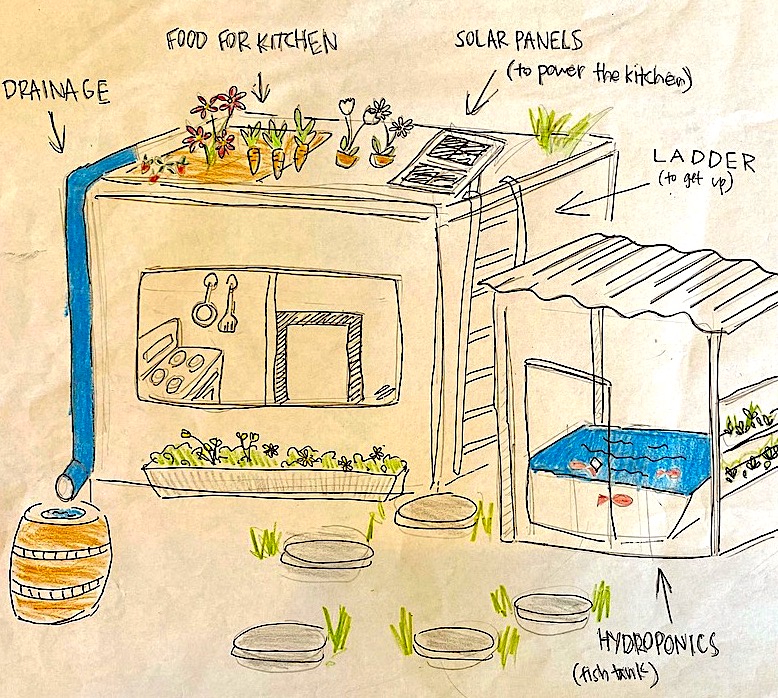 FOOD FOR KITCHEN
SOLAR PANELS
(to power the kitchen)
DRAINAGE
LADDER
(to get up)
HYDROPONICS
(fish tank)